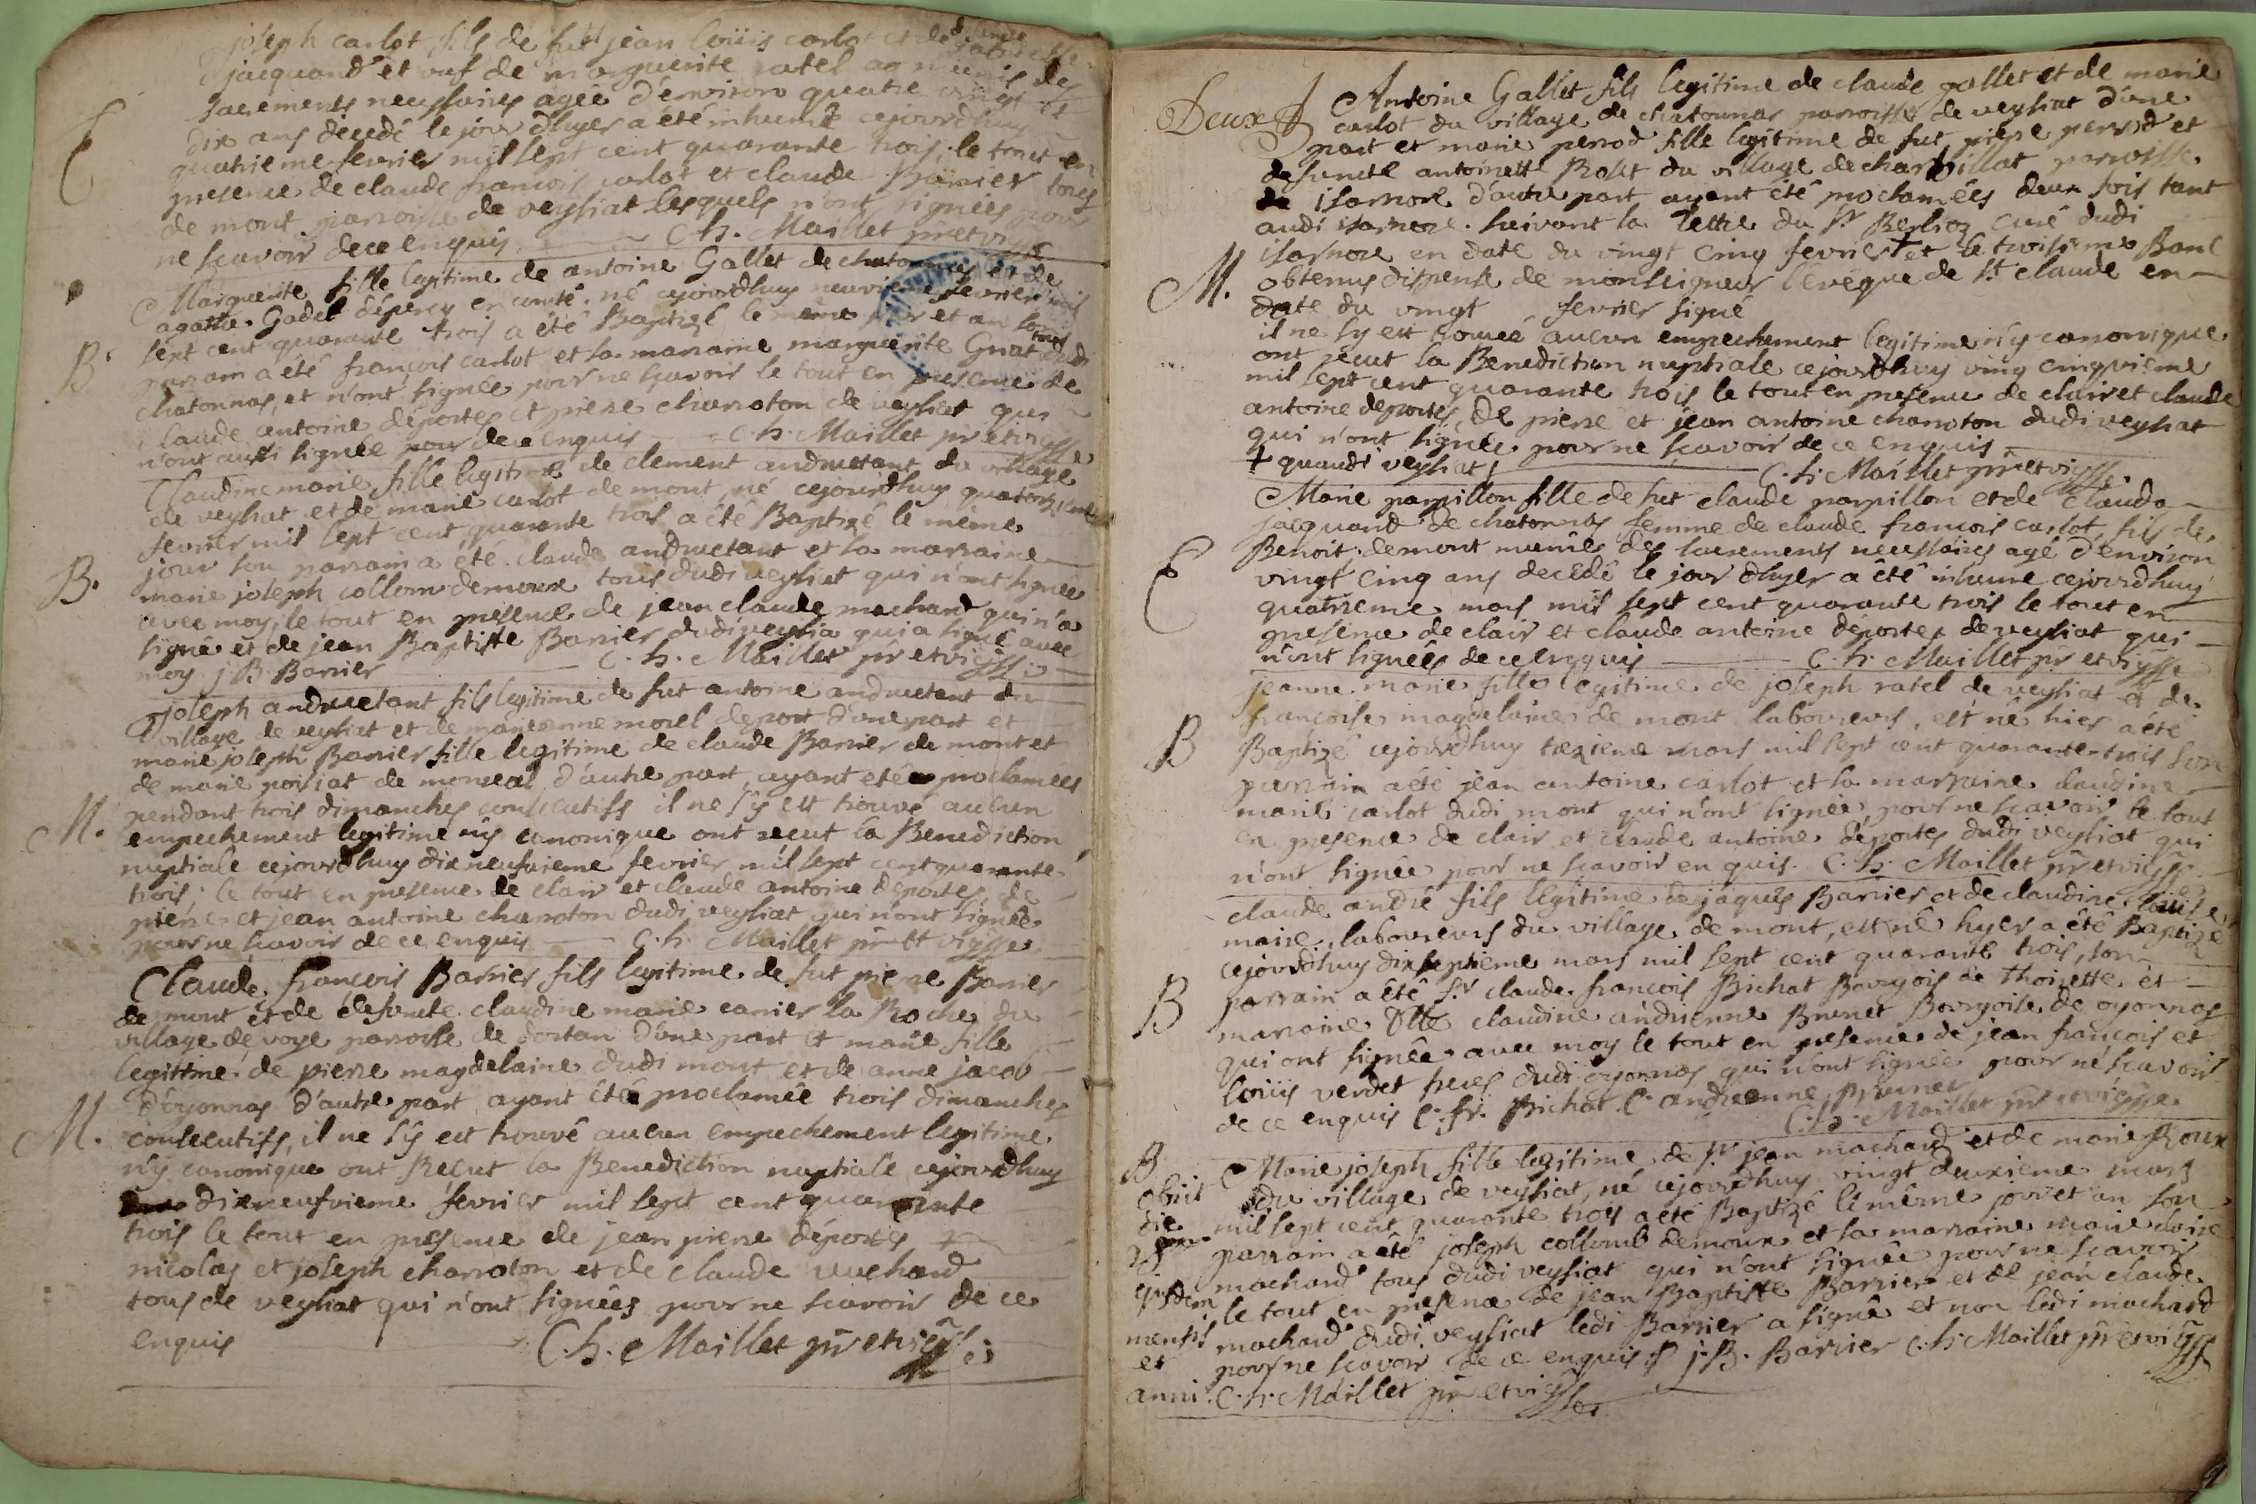 joseph carlot fils de fut jean loüis carlot et de
jacquand et vuf de marguerite ratel munis des
sacrements necessaires agée d'environ quatre vingt et
dix ans décedé le jour d'hyer a été inhumé cejourd'huy
E
quatrieme fevrier mil sept cent quarante trois, le tout en
presence de claude francois carlot et claude Barrier tous
de mont parroisse de veysiat lesquels n'ont signées pour
ne scavoir de ce enquis C. h. Maillet pr et vicaire
Marguerite fille legitime de antoine Gallet de chatonnas et de
agatha Gadet d'épercy en comté né cejourd'huy neuvieme fevrier mil
B.
sept cent quarante trois a été Baptizé le même jour et an son
parrain a été françois carlot et la marraine marguerite Gnat dudi
chatonnas, et n'ont signée pour ne scavoir le tout en presence de
claude antoine déportes et pierre charroton de veysiat qui
n'ont aussi signée pour de ce enquis C. h. Maillet pr et vicsse
Claudine marie fille legitime de clement andruetant du village
de veysiat et de marie carlot de mont, né cejourd'huy quatorzieme
fevrier mil sept cent quarante trois a été Baptizé le même
jour son parrain a été claude andruetant et la marraine
B.
marie joseph collom demoux tous dudi veysiat qui n'ont signée
avec moy, le tout en présence de jean claude machard qui n'a
signé et de jean Baptiste Barrier dudi veysia qui a signé avec
moy j B Barrier C. h. Maillet pr et vicsse
joseph andruetant fils legitime de fut antoine andruetant du
village de veysiat et de morel deport d'une part et
marie joseph Barrier fille legitime de claude Barrier de mont et
de marie poisiat de d'autre part, ayant eté proclamées
M.
pendant trois dimanches consecutifs il ne s'y est trouvé aucun
empechement legitime n'y canonique ont recut la Benediction
nuptiale cejourd'huy dixneufvieme fevrier mil sept cent quarante
trois; le tout en presence de clair et claude antoine deportes, de
pierre et jean antoine charroton dudi veysiat qui n'ont signée
pour ne scavoir de ce enquis C. h. Maillet pr et vicsse
Claude francois Barrier fils legitime de fut pierre Barrier
de mont et de defuncte claudine marie carrier la Roche du
village de voye parroisse de dortan d'une part et marie fille
legittime de pierre magdelaine dudi mont et de anne jacob
d'oyonnas d'autre part ayant été proclamée trois dimanches
M.
consecutifs, il ne s'y est trouvé aucun empechement legitime
n'y canonique ont Recut la Benediction nuptiale cejourd'huy
dixneufvieme fevrier mil sept cent quarante
trois le tout en presence de jean pierre déportes
nicolas et joseph charroton et de claude vuchard
tous de veysiat qui n'ont signées pour ne scavoir de ce
enquis C. h. Maillet pr et vicsse
Deux Antoine Gallet fils legitime de claude gallet et de marie
carlot du village de chatonnas parroisse de veysiat d'une
part et marie perrod fille legitime de fut pierre perrod et
defuncte antoinette Rolet du village de charbillat parroisse
de isarnore d'autre part ayant été proclamées deux fois tant
audi isarnore suivant la lettre du Sr Berlioz curé dudi
isarnore en date du vingt cinq fevrier + et le troisieme Banc
M.
obtenus dispense de monseigneur levêque de St claude en
date du vingt fevrier signé
il ne s'y est trouvé aucun empechement legitime n'y canonique
ont recut la Benediction nuptiale cejourd'huy ving cinquieme
mil sept cent quarante trois le tout en presence de clair et claude
antoine deportes, de pierre et jean antoine charroton dudi veysiat
qui n'ont signée pour ne scavoir de ce enquis
+ qu'audi veysiat C. h. Maillet pr et vicsse
Marie parpillon fille de fut claude parpillon et de claude
jacquand de chatonnas femme de claude francois carlot, fils de
E
Benoit demont munies des sacrements necessaires agé d'environ
vingt cinq ans decedé le jour d'hyer a été inhumé cejourd'huy
quatrieme mars mil sept cent quarante trois le tout en
presence de clair et claude antoine déportes de veysiat qui
n'ont signées de ce enquis C. h. Maillet pr et vicsse
jeanne marie fille legitime de joseph ratel de veysiat et de
françoise magdelaine de mont laboureurs, est né hier a été
B
Baptizé cejourd'huy trezieme mars mil sept cent quarante-trois son
parrain a été jean antoine carlot et la marraine claudine
marie carlot dudi mont qui n'ont signée, pour ne scavoir le tout
en presence de clair et claude antoine déportes dudi veysiat qui
n'ont signée pour ne scavoir en quis. C. h. Maillet pr et vicsse
claude andré fils legitime de jaques Barrier et de claudine loüise
maire, laboureurs du village de mont, est né hyer a été Baptizé
cejourd'huy dixseptieme mars mil sept cent quarante trois, son
B
parrain a été Sr claude françois Bichat Bourgois de Thoirette et
marraine Dlle claudine andrienne Brunet Bourgoise de oyonnas
qui ont signée avec moy le tout en presence de jean françois et
loüis verdet freres dudi oyonnas qui n'ont signée pour ne scavoir
de ce enquis C. fr. Bichat C andreanne Brunet
C. h. Maillet pr et vicsse
B
Marie joseph fille legitime de Sr jean machard et de marie Roux
obiit
du village de veysiat, né cejourd'huy vingt deuxieme mars
die
mil sept cent quarante trois a été Baptizé le même jour et an son
25
parrain a été joseph collomb demoux et la marraine marie claire
ejusdem
machard tous dudi veysiat qui n'ont signée pour ne scavoir
le tout en presence de jean Baptiste Barrier et de jean claude
mensis
machard dudi veysiat ledi Barrier a signé et non ledi machard
et
pour ne scavoir de ce enquis j. B. Barrier C. h. Maillet pr et vicsse
anni. C. h. Maillet pr et vicsse